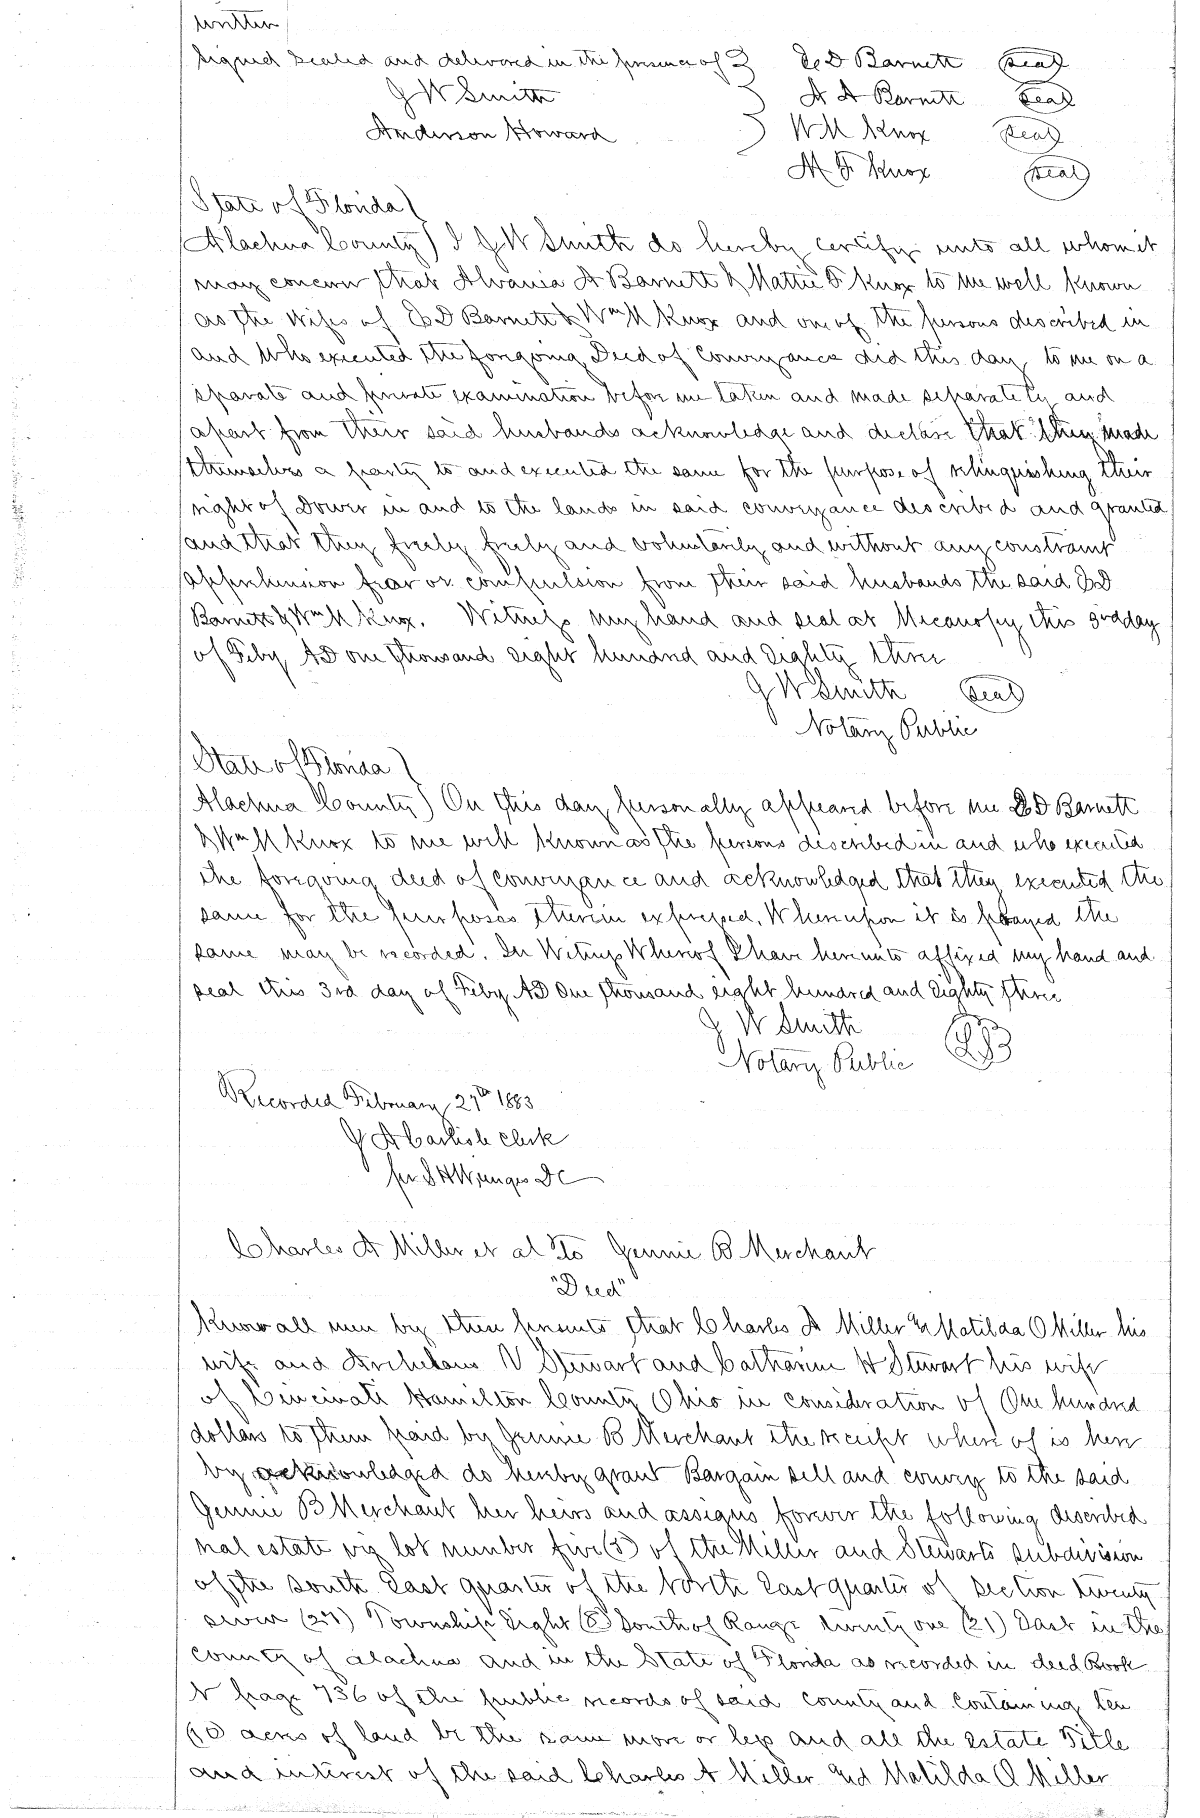 written
Signed Sealed and delivered in the presence of } E D Barnett (Seal)
J W Smith } A A Barnett (Seal)
Anderson Howard } W M Knox (Seal)
M F Knox (Seal)
State of Florida )
Alachua County ) I J W Smith do hereby certify unto all whom it
may concern that Alvania A Barnett & Mattie F Knox to me well known
as the Wifes of E D Barnett & Wm M Knox and one of the persons described in
and Who executed the forgoing Deed of Conveyance did this day to me on a
sparate and private examination before me taken and made separately and
apart from their said husbands acknowledge and declare that they made
themselves a party to and executed the same for the purpose of relinguishing their
right of Dower in and to the lands in said conveyance described and granted
and that they freely freely and voluntarily and without any constraint
apprehension fear or compulsion from their said husbands the said E D
Barnett & Wm M Knox. Witness my hand and seal at Micanopy this 3rd day
of Feby AD one thousand eight hundred and Eighty three
J W Smith (Seal)
Notary Public
State of Florida )
Alachua County ) On this day personally appeared before me E D Barnett
& Wm M Knox to me well known as the persons described in and who executed
the foregoing deed of conveyance and acknowledged that they executed the
same for the purposes therein expressed. Whereupon it is prayed the
same may be recorded. In Witness Whereof I have hereunto affixed my hand and
seal this 3rd day of Feby AD One thousand eight hundred and Eighty three
J W Smith
Notary Public
Recorded February 27th 1883
J A Carlisle Clerk
per S H Wienges DC
Charles A Miller et al To Jennie B Merchant
"Deed"
Know all men by these presents that Charles A Miller & Matilda O Miller his
wife and Archelaus V Stewart and Catharine H Stewart his wife
of Cincinati Hamilton County Ohio in consideration of One hundred
dollars to them paid by Jennie B Merchant the receipt where of is here
by acknowledged do hereby grant Bargain sell and convey to the said
Jennie B Merchant her heirs and assigns forever the following described
real estate viz lot number five (5) of the Miller and Stewarts subdivision
of the south East quarter of the North East quarter of section twenty
seven (27) Township Eight (8) South of Range twenty one (21) East in the
County of Alachua and in the State of Florida as recorded in deed Book
N page 736 of the public records of said county and Containing ten
(10 acres of land be the same more or less and all the Estate Title
and interest of the said Charles A Miller and Matilda O Miller